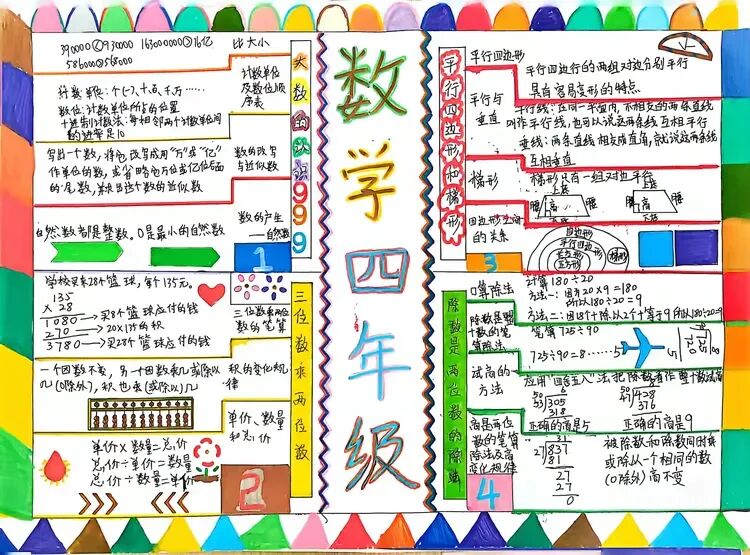 数学四年级
大数的认识
999
390000<930000 163000000>16亿
比大小
586000>568000
计数单位:个(一)、十、百、千、万……
数位:计数单位所占的位置
十进制计数法:每相邻两个计数单位间
的进率是10
计数单位
及数位顺
序表
写出一个数,将它改写成用“万”或“亿”
作单位的数,或省略它万位或亿位后面
的尾数,求出这个数的近似数
数的改写
与近似数
自然数都是整数。0是最小的自然数
数的产生
——自然数
1
三位数乘两位数
学校买来28个篮球,每个135元。
135
× 28
1080→买8个篮球应付的钱
270→20×135的积
3780→买28个篮球应付的钱
三位数乘两位
数的笔算
一个因数不变,另一个因数乘几或除以
几(0除外),积也乘(或除以)几
积的变化规
律
单价、数量
和总价
单价×数量=总价
总价÷单价=数量
总价÷数量=单价
2
平行四边形和梯形
平行四边形
平行四边行的两组对边分别平行
具有容易变形的特点
平行与
垂直
平行线:在同一平面内,不相交的两条直线
叫作平行线,也可以说这两条线互相平行
垂线:两条直线相交成直角,就说这两条线
互相垂直
梯形
梯形只有一组对边平行
上底
腰 高 腰
下底
上底
腰 高 腰
下底
四边形之间
的关系
四边形
平行四边形
长方形
正方形
梯形
3
除数是两位数的除法
口算除法
计算180÷20
方法一:因为20×9=180
所以180÷20=9
方法二:因18个十除以2个十等于9所以180÷20=9
除数是整
十数的笔
算除法
笔算725÷90
725÷90=8……5
试商的
方法
应用“四舍五入”法把除数看作整十数试商
正确的商是5
正确的商是9
商是两位
数的笔算
除法及商
变化规律
31
27√837
81
27
27
0
被除数和除数同时乘
或除以一个相同的数
(0除外)商不变
4